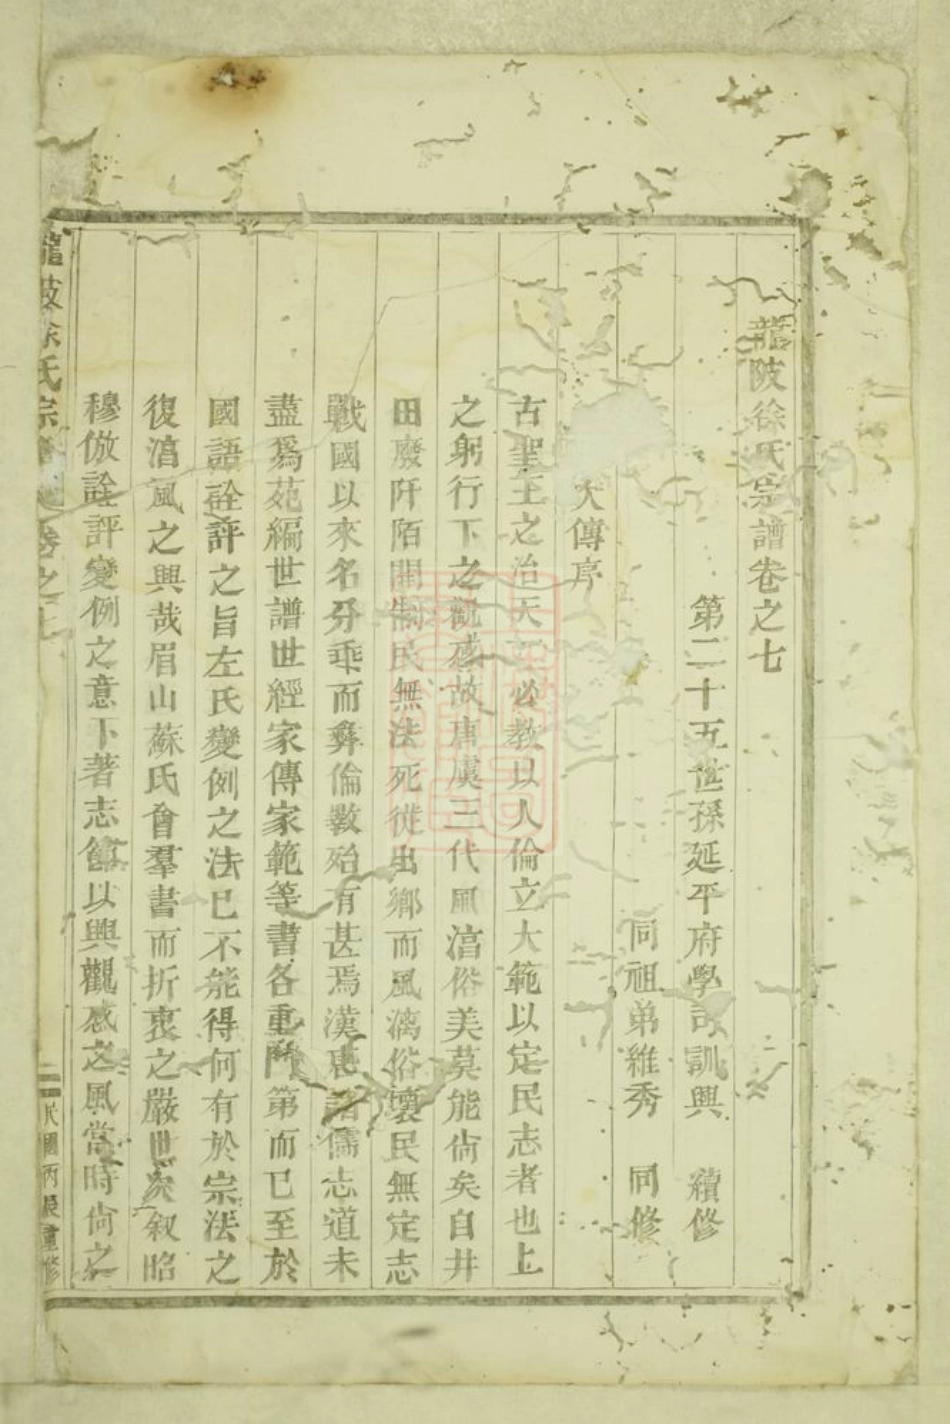 龍陂徐氏宗譜卷之七
第二十五世孫延平府學司訓興 續修
同祖弟維秀 同修
大傳序
古聖王之治天下必教以人倫立大範以定民志者也上
之躬行下之觀感故唐虞三代風湻俗美莫能尙矣自井
田廢阡陌開制民無法死徙出鄉而風漓俗壞民無定志
戰國以來名分乖而彝倫斁殆有甚焉漢唐諸儒志道未
盡爲苑編世譜世經家傳家範等書各重門第而已至於
國語詮評之旨左氏變例之法已不能得何有於宗法之
復湻風之興哉眉山蘇氏會羣書而折衷之嚴世次叙昭
穆倣詮評變例之意下著志舘以興觀感之風當時尙之
龍陂徐氏宗譜 卷之七
二 民國丙辰重修